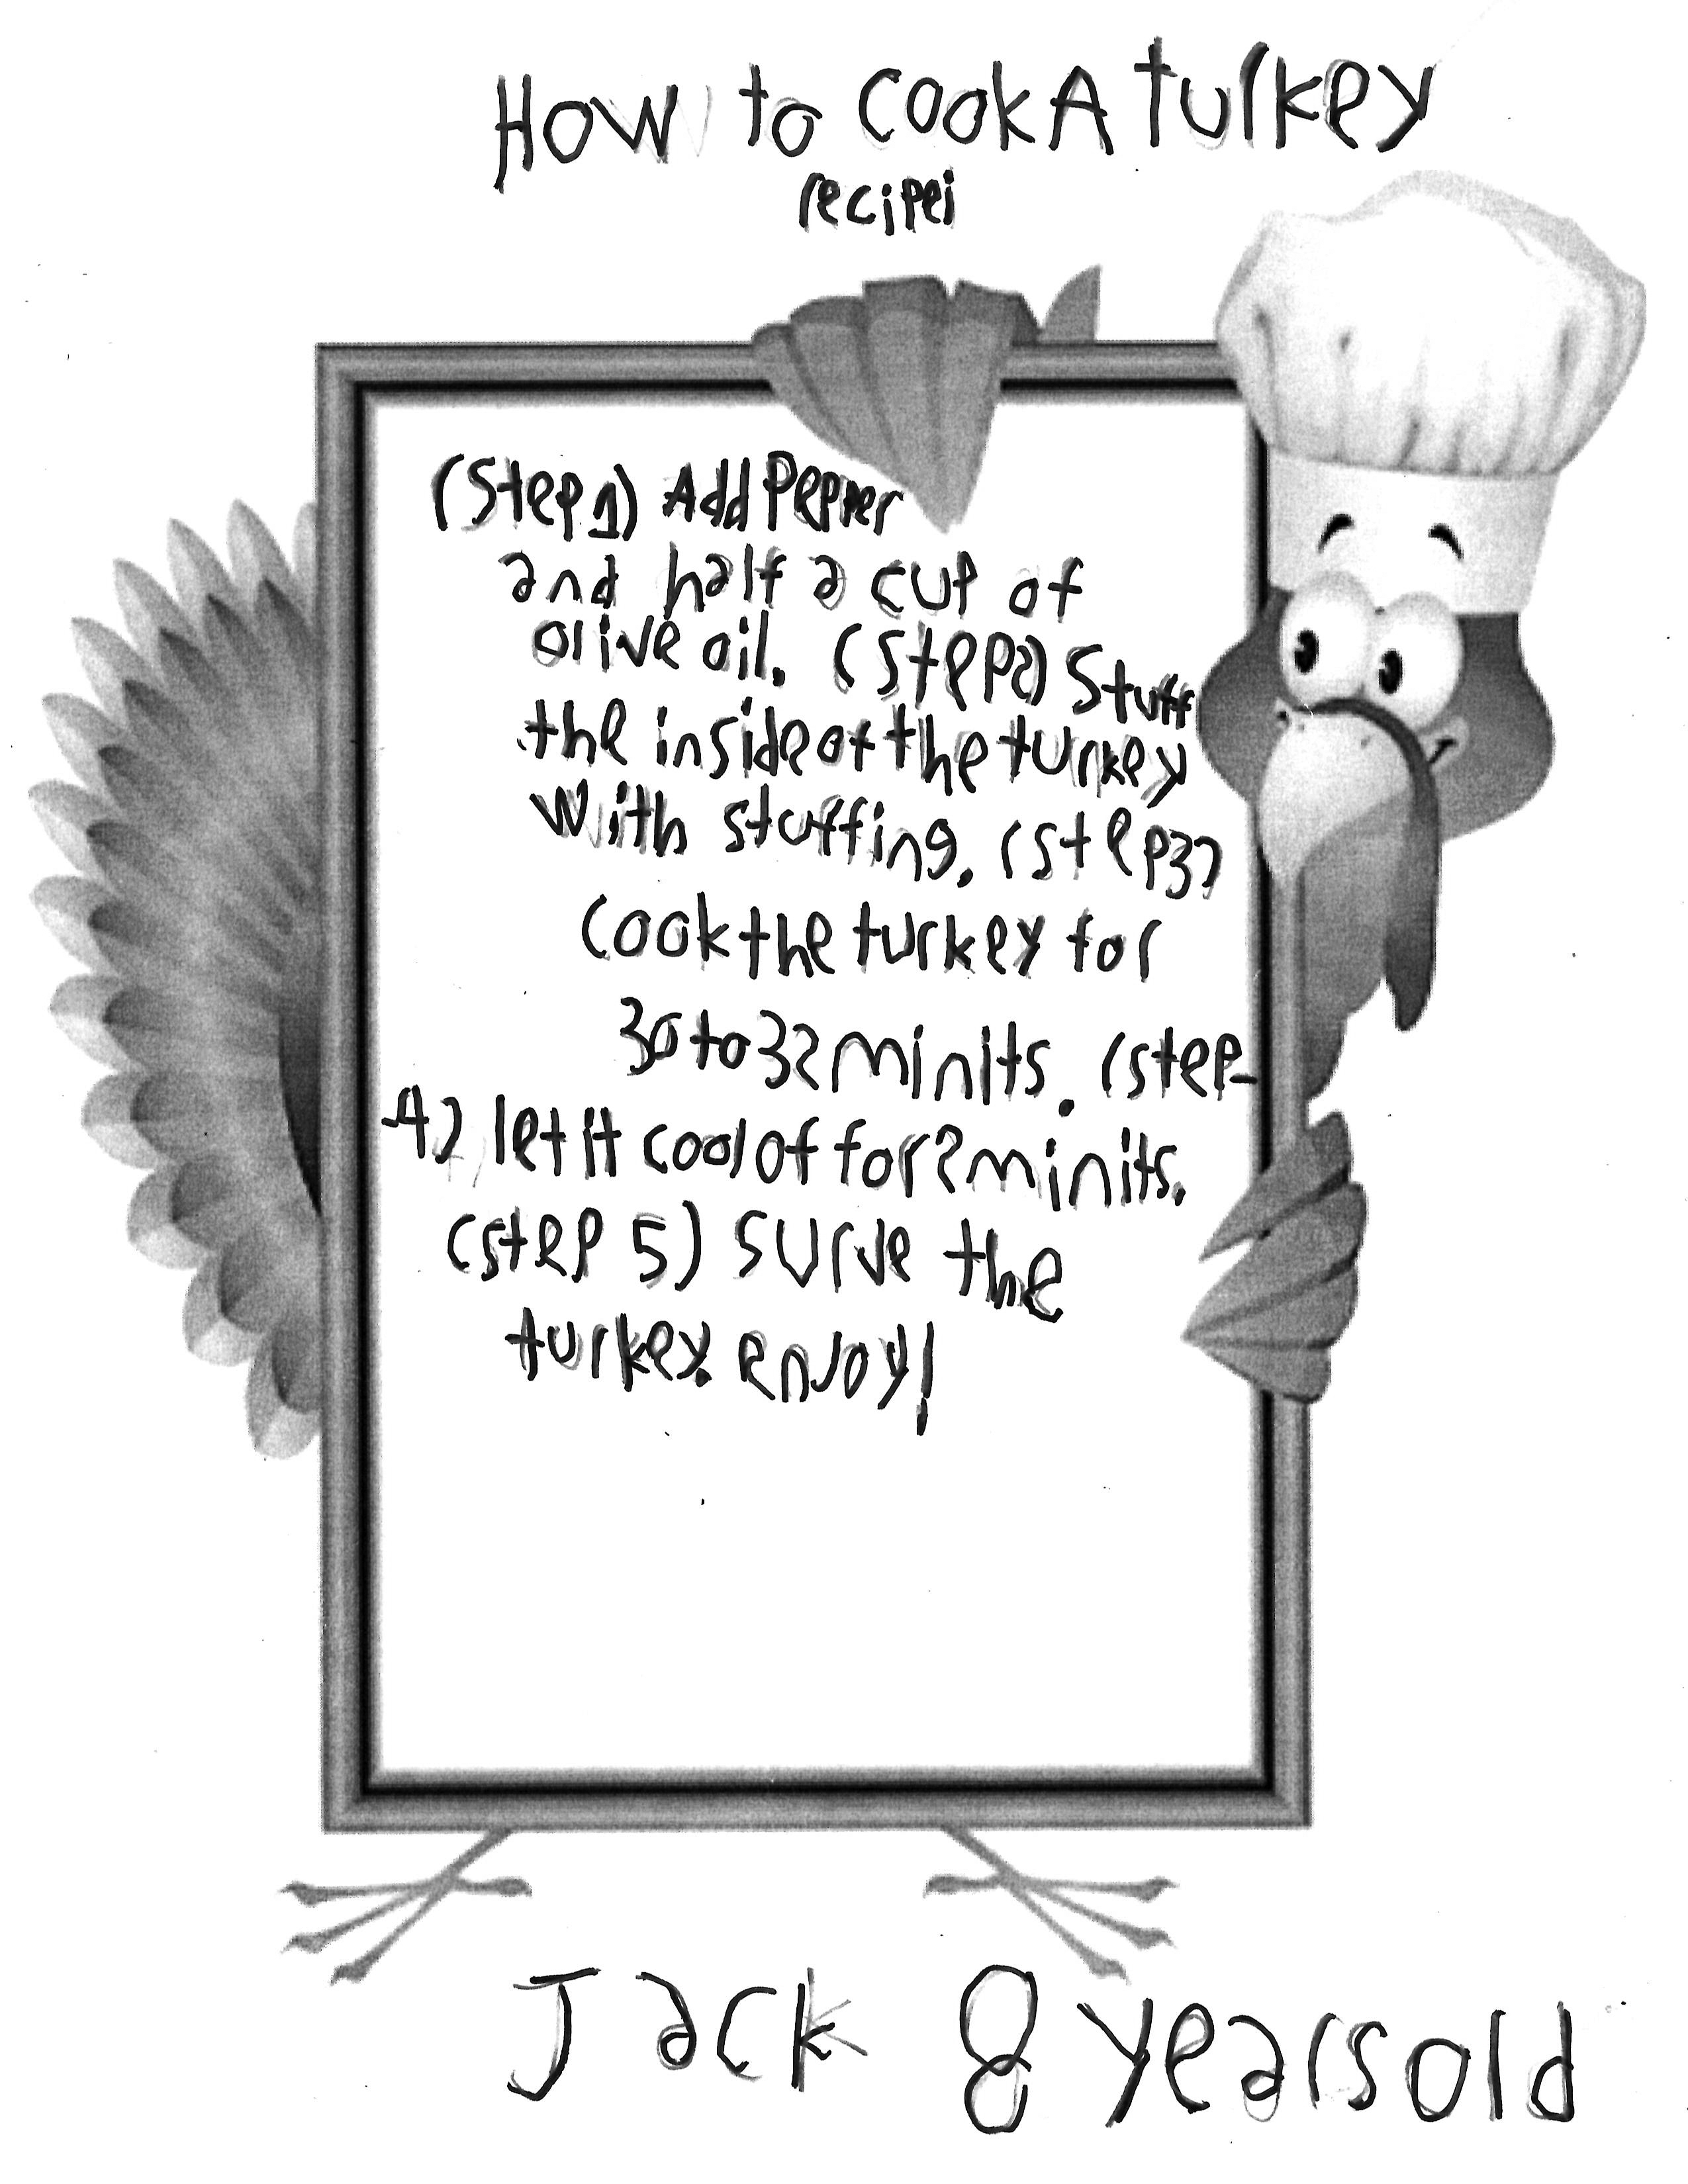 How to cook A turkey
recipei
(Step 1) Add Pepper
and half a cup of
olive oil. (Step 2) Stuff
the inside of the turkey
with stuffing. (step 3)
cook the turkey for
30 to 32 minits. (step-
4) let it cool of for 2 minits.
(step 5) surve the
turkey. enjoy!
Jack 8 years old